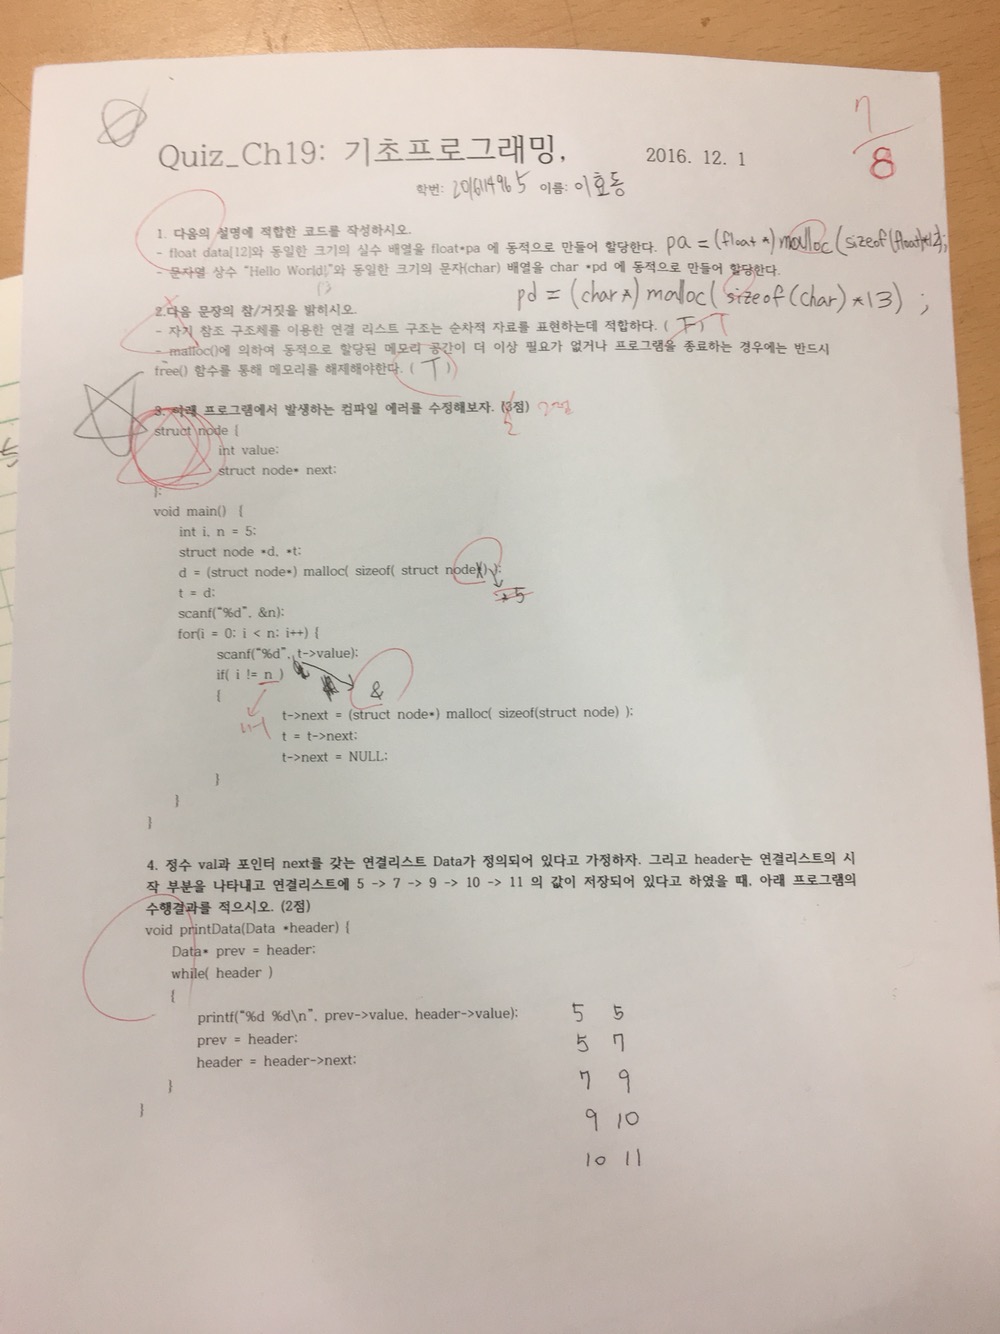 7
8
Quiz_Ch19: 기초프로그래밍,
2016. 12. 1
학번: 2016114965 이름: 이호동
1. 다음의 설명에 적합한 코드를 작성하시오.
- float data[12]와 동일한 크기의 실수 배열을 float*pa 에 동적으로 만들어 할당한다. pa = (float *) malloc (sizeof(float)*12);
- 문자열 상수 "Hello World!"와 동일한 크기의 문자(char) 배열을 char *pd 에 동적으로 만들어 할당한다.
13
pd = (char *) malloc( sizeof(char) * 13) ;
2.다음 문장의 참/거짓을 밝히시오.
- 자기 참조 구조체를 이용한 연결 리스트 구조는 순차적 자료를 표현하는데 적합하다. ( F ) T
- malloc()에 의하여 동적으로 할당된 메모리 공간이 더 이상 필요가 없거나 프로그램을 종료하는 경우에는 반드시
free() 함수를 통해 메모리를 해제해야한다. ( T )
3. 아래 프로그램에서 발생하는 컴파일 에러를 수정해보자. (3점) 2점
struct node {
int value;
struct node* next;
};
void main() {
int i, n = 5;
struct node *d, *t;
d = (struct node*) malloc( sizeof( struct node*) );
*5
t = d;
scanf("%d", &n);
for(i = 0; i < n; i++) {
scanf("%d", t->value);
if( i != n )
{ &
n-1
t->next = (struct node*) malloc( sizeof(struct node) );
t = t->next;
t->next = NULL;
}
}
}
4. 정수 val과 포인터 next를 갖는 연결리스트 Data가 정의되어 있다고 가정하자. 그리고 header는 연결리스트의 시
작 부분을 나타내고 연결리스트에 5 -> 7 -> 9 -> 10 -> 11 의 값이 저장되어 있다고 하였을 때, 아래 프로그램의
수행결과를 적으시오. (2점)
void printData(Data *header) {
Data* prev = header;
while( header )
{
printf("%d %d\n", prev->value, header->value); 5 5
prev = header; 5 7
header = header->next;
} 7 9
} 9 10
10 11